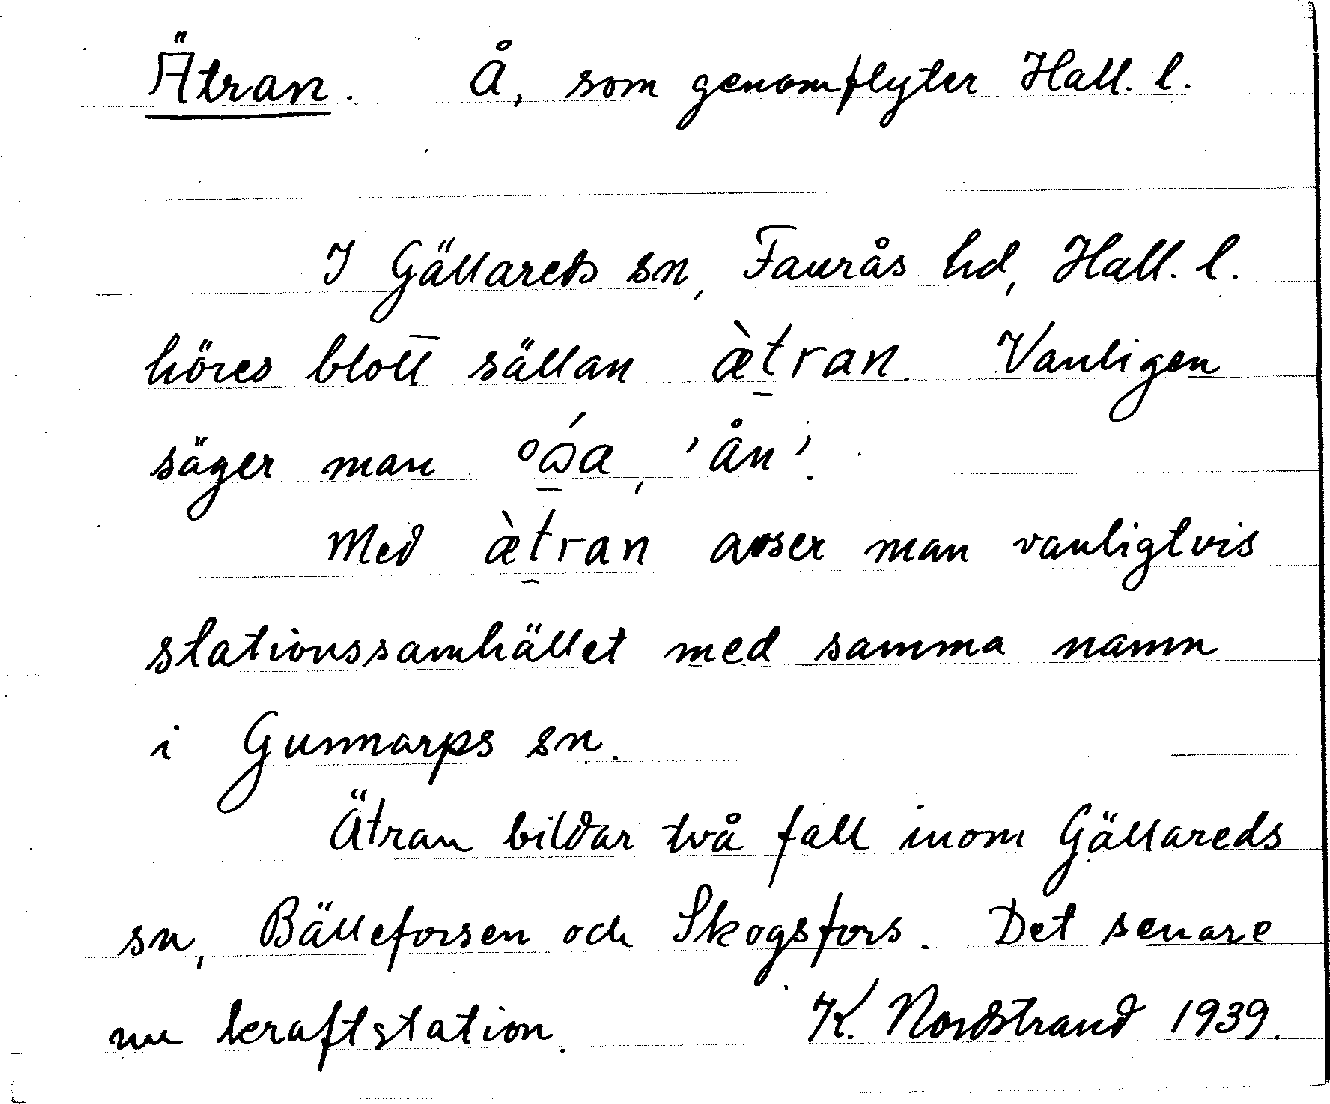 Ätran. Å, som genomflyter Hall. l.
I Gällareds sn, Faurås hd, Hall. l.
höres blott sällan æ̀t̠ran. Vanligen
säger man , 'ån'.
Med æ̀t̠ran avser man vanligtvis
stationssamhället med samma namn
i Gunnarps sn.
Ätran bildar två fall inom Gällareds
sn, Bälleforsen och Skogsfors. Det senare
nu kraftstation. K. Nordstrand 1939.